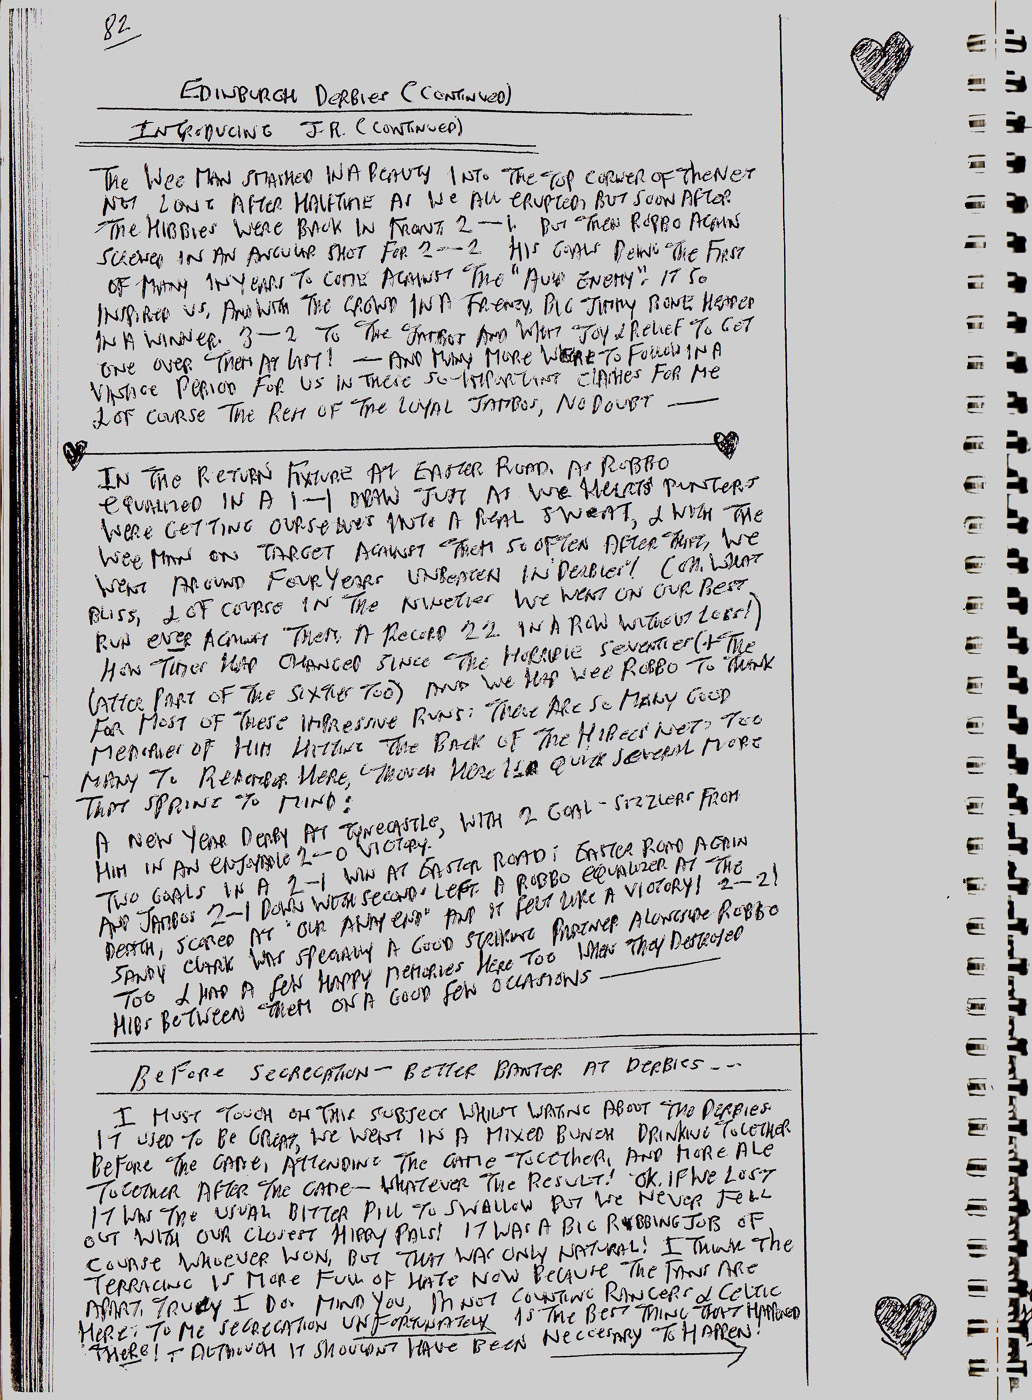 82
EDINBURGH DERBIES (CONTINUED)
INTRODUCING J.R. (CONTINUED)
THE WEE MAN SMASHED IN A BEAUTY INTO THE TOP CORNER OF THE NET
NOT LONG AFTER HALFTIME AS WE ALL ERUPTED, BUT SOON AFTER
THE HIBBIES WERE BACK IN FRONT 2—1. BUT THEN ROBBO AGAIN
SCREWED IN AN ANGULAR SHOT FOR 2—2 HIS GOALS BEING THE FIRST
OF MANY IN YEARS TO COME AGAINST THE "AULD ENEMY". IT SO
INSPIRED US, AND WITH THE CROWD IN A FRENZY, BIG JIMMY BONE HEADED
IN A WINNER. 3—2 TO THE JAMBOS AND WHAT JOY & RELIEF TO GET
ONE OVER THEM AT LAST! — AND MANY MORE WERE TO FOLLOW IN A
VINTAGE PERIOD FOR US IN THESE SO-IMPORTANT CLASHES FOR ME
& OF COURSE THE REST OF THE LOYAL JAMBOS, NO DOUBT —
IN THE RETURN FIXTURE AT EASTER ROAD, AS ROBBO
EQUALIZED IN A 1—1 DRAW JUST AS WE HEARTS PUNTERS
WERE GETTING OURSELVES INTO A REAL SWEAT, & WITH THE
WEE MAN ON TARGET AGAINST THEM SO OFTEN AFTER THAT, WE
WENT AROUND FOUR YEARS UNBEATEN IN DERBIES! OOH, WHAT
BLISS, & OF COURSE IN THE NINETIES WE WENT ON OUR BEST
RUN EVER AGAINST THEM, A RECORD 22 IN A ROW WITHOUT LOSS!)
HOW TIMES HAD CHANGED SINCE THE HORRIBLE SEVENTIES (+ THE
LATTER PART OF THE SIXTIES TOO) AND WE HAD WEE ROBBO TO THANK
FOR MOST OF THESE IMPRESSIVE RUNS: THERE ARE SO MANY GOOD
MEMORIES OF HIM HITTING THE BACK OF THE HIBEES NET, TOO
MANY TO REMEMBER HERE, THOUGH HERE IS QUICK SEVERAL MORE
THAT SPRING TO MIND:
A NEW YEAR DERBY AT TYNECASTLE, WITH 2 GOAL-SIZZLERS FROM
HIM IN AN ENJOYABLE 2—0 VICTORY.
TWO GOALS IN A 2—1 WIN AT EASTER ROAD: EASTER ROAD AGAIN
AND JAMBOS 2—1 DOWN WITH SECONDS LEFT A ROBBO EQUALIZER AT THE
DEATH, SCORED AT "OUR AWAY END" AND IT FELT LIKE A VICTORY! 2—2!
SANDY CLARK WAS SPECIALLY A GOOD STRIKING PARTNER ALONGSIDE ROBBO
TOO & HAD A FEW HAPPY MEMORIES HERE TOO WHEN THEY DESTROYED
HIBS BETWEEN THEM ON A GOOD FEW OCCASIONS —
BEFORE SEGREGATION — BETTER BANTER AT DERBIES ---
I MUST TOUCH ON THIS SUBJECT WHILST WRITING ABOUT THE DERBIES.
IT USED TO BE GREAT, WE WENT IN A MIXED BUNCH DRINKING TOGETHER
BEFORE THE GAME, ATTENDING THE GAME TOGETHER, AND MORE ALE
TOGETHER AFTER THE GAME — WHATEVER THE RESULT! OK, IF WE LOST
IT WAS THE USUAL BITTER PILL TO SWALLOW BUT WE NEVER FELL
OUT WITH OUR CLOSEST HIBBY PALS! IT WAS A BIG RUBBING JOB OF
COURSE WHOEVER WON, BUT THAT WAS ONLY NATURAL! I THINK THE
TERRACING IS MORE FULL OF HATE NOW BECAUSE THE FANS ARE
APART, TRULY I DO. MIND YOU, I'M NOT COUNTING RANGERS & CELTIC
HERE: TO ME SEGREGATION UNFORTUNATELY IS THE BEST THING THAT HAPPENED
THERE! — ALTHOUGH IT SHOULDN'T HAVE BEEN NECCESARY TO HAPPEN!